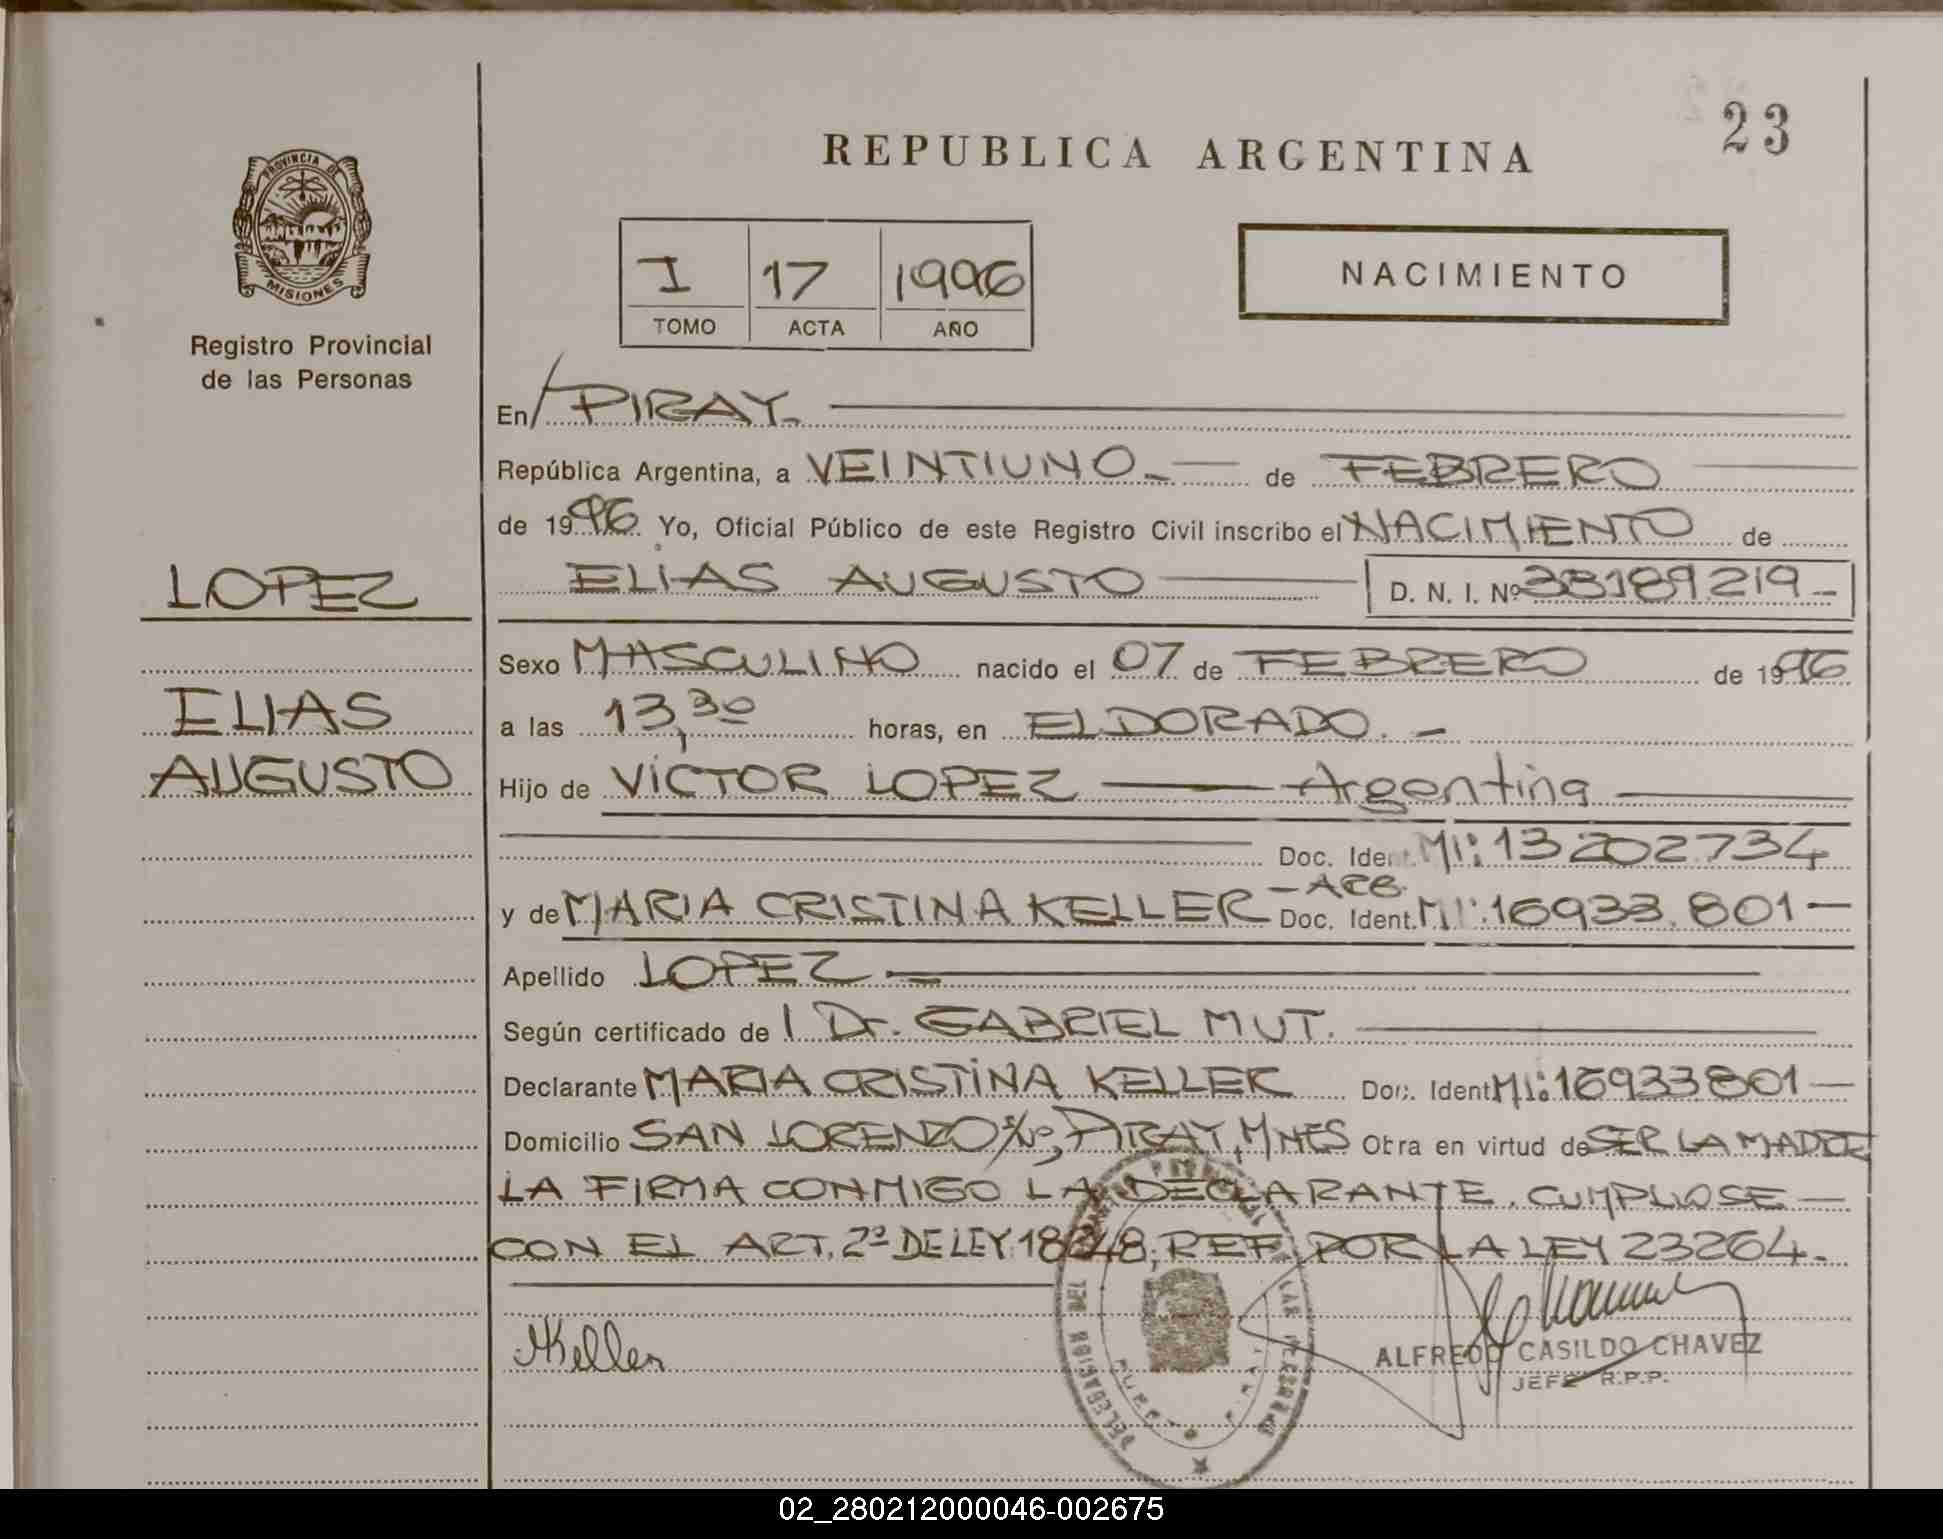 23
REPUBLICA ARGENTINA
PROVINCIA DE
MISIONES
Registro Provincial
de las Personas
I 17 1996
TOMO ACTA AÑO
NACIMIENTO
En PIRAY.
República Argentina, a VEINTIUNO de FEBRERO
de 1996 Yo, Oficial Público de este Registro Civil inscribo el NACIMIENTO de
LOPEZ
ELIAS AUGUSTO D. N. I. Nº 38189219
Sexo MASCULINO nacido el 07 de FEBRERO de 1996
ELIAS
a las 13,30 horas, en ELDORADO.
AUGUSTO
Hijo de VICTOR LOPEZ Argentina
Doc. Ident. MI: 13202734
y de MARIA CRISTINA KELLER - ARG. Doc. Ident. MI: 16933.801
Apellido LOPEZ
Según certificado de l Dr. GABRIEL MUT.
Declarante MARIA CRISTINA KELLER Doc. Ident MI: 16933801
Domicilio SAN LORENZO s/nº, PIRAY, MNES Obra en virtud de SER LA MADRE
LA FIRMA CONMIGO LA DECLARANTE. CUMPLIOSE
CON EL ART. 2º DE LEY 18248, REF. POR LA LEY 23264.
MKeller
ALFREDO CASILDO CHAVEZ
JEFE R.P.P.
DELEGACION DEL LAS PERSONAS
PUERTO PIRAY
02_280212000046-002675